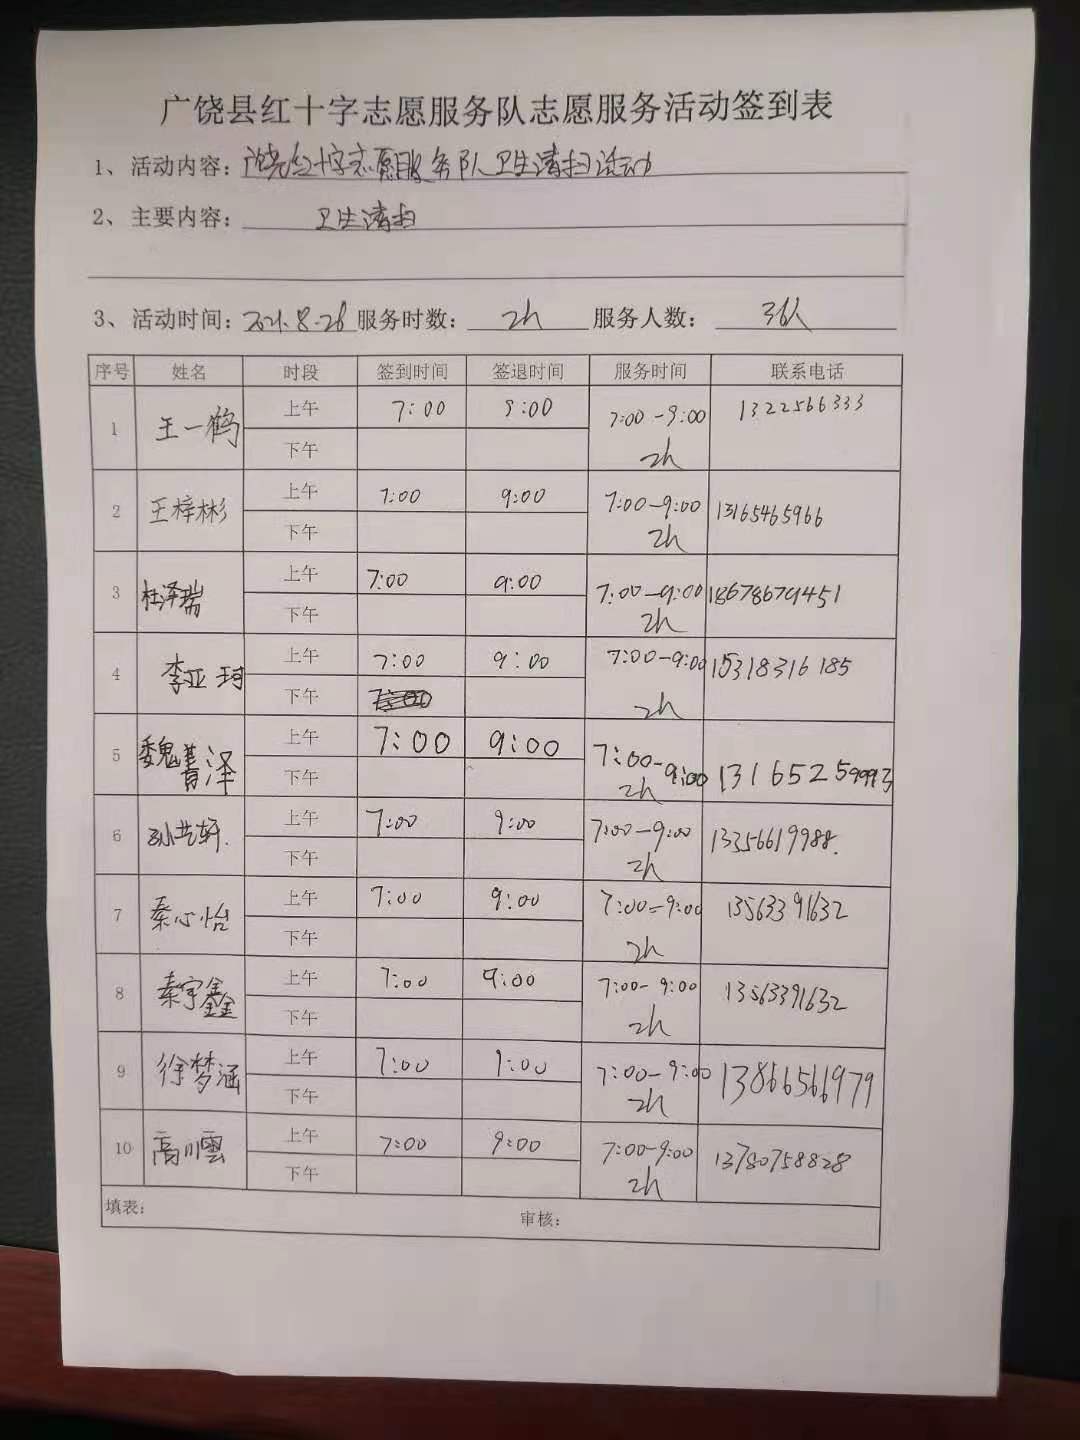 广饶县红十字志愿服务队志愿服务活动签到表
1、活动内容：广饶红十字志愿服务队卫生清扫活动
2、主要内容： 卫生清扫
3、活动时间：2021.8.28 服务时数： 2h 服务人数： 36人
序号 姓名 时段 签到时间 签退时间 服务时间 联系电话
1 王一鹤 上午 7:00 9:00 7:00-9:00 1322566333
下午 2h
2 王梓彬 上午 7:00 9:00 7:00-9:00 13165465966
下午 2h
3 杜泽瑞 上午 7:00 9:00 7:00-9:00 18678679451
下午 2h
4 李亚珂 上午 7:00 9:00 7:00-9:00 15318316185
下午 2h
5 魏善泽 上午 7:00 9:00 7:00-9:00
下午 2h
6 孙艺轩. 上午 7:00 9:00 7:00-9:00 13356619988.
下午 2h
7 秦心怡 上午 7:00 9:00 7:00-9:00 13563391632
下午 2h
8 秦宇鑫 上午 7:00 9:00 7:00-9:00 13563391632
下午 2h
9 徐梦涵 上午 7:00 9:00 7:00-9:00 13866566979
下午 2h
10 高川雲 上午 7:00 9:00 7:00-9:00 13780758828
下午 2h
填表： 审核：